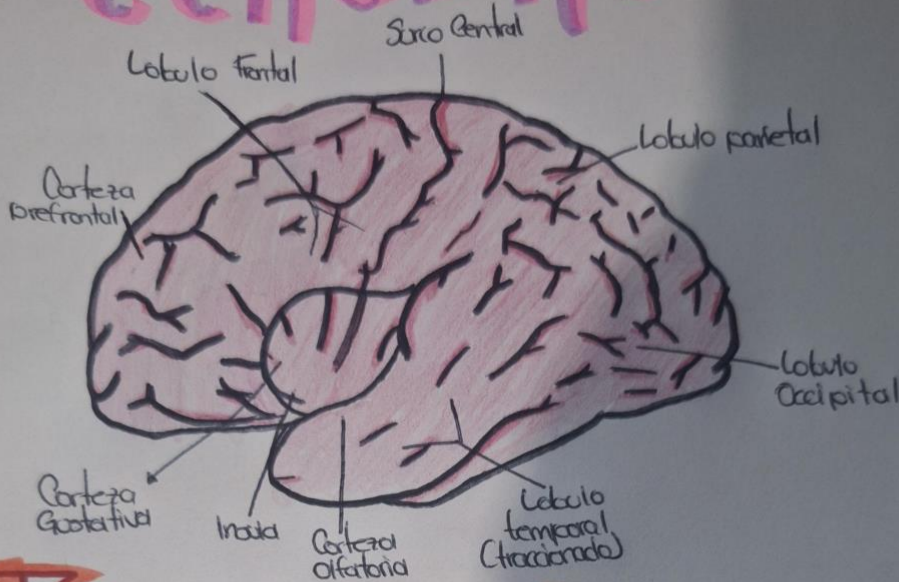 Surco Central
Lobulo Frontal
Lobulo parietal
Corteza
prefrontal
Lobulo
Occipital
Corteza
Gustativa
Insula
Corteza
olfatoria
Lobulo
temporal
(traccionado)